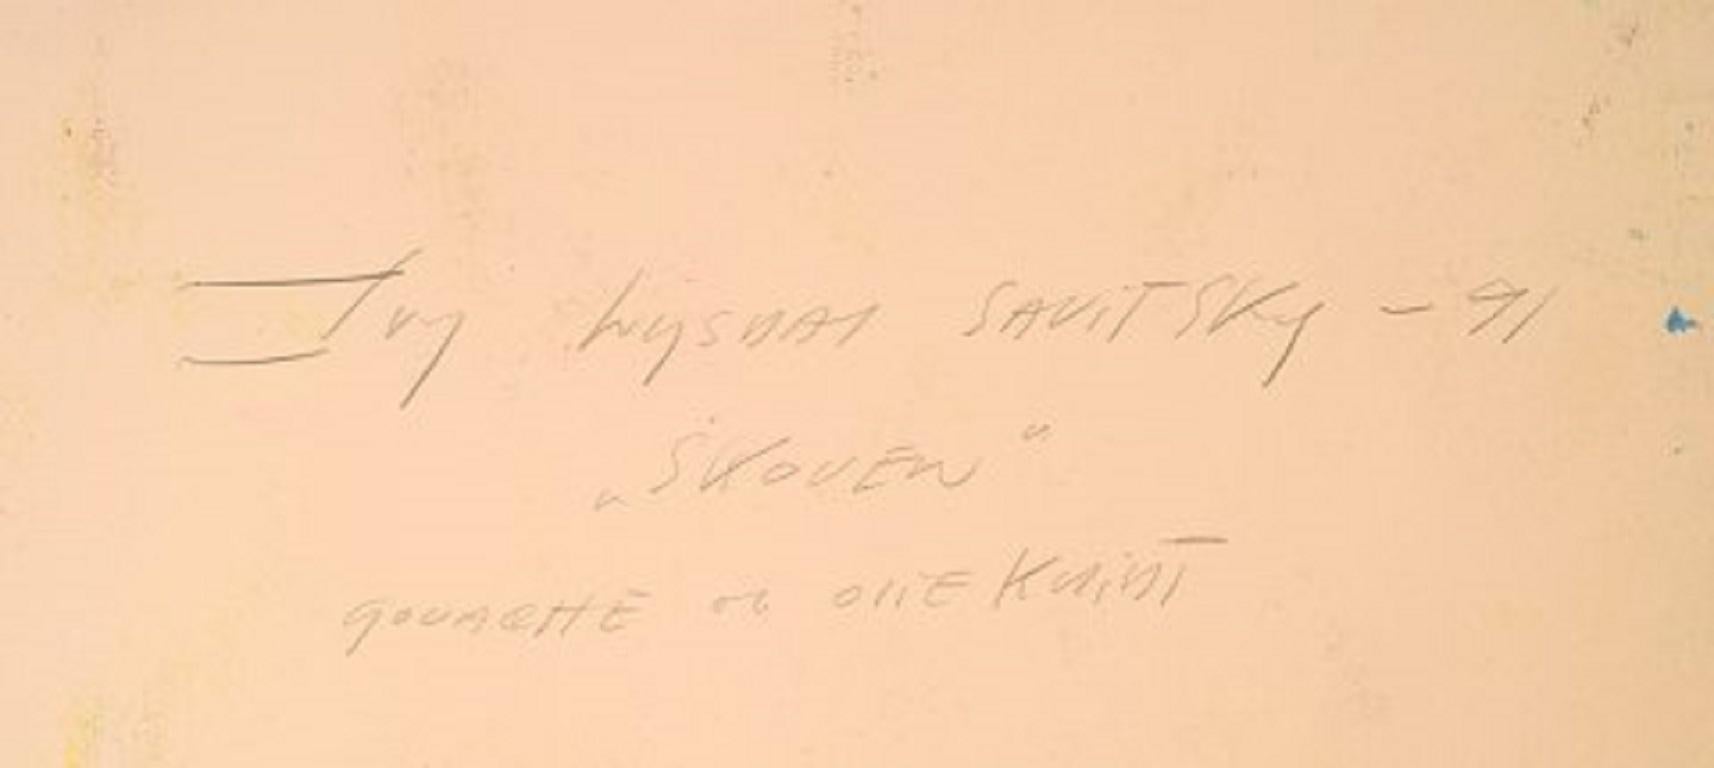 Ivy Lysdal SAVITSKy - 91
„SKOVEN"
gouacHE og oliEKridT